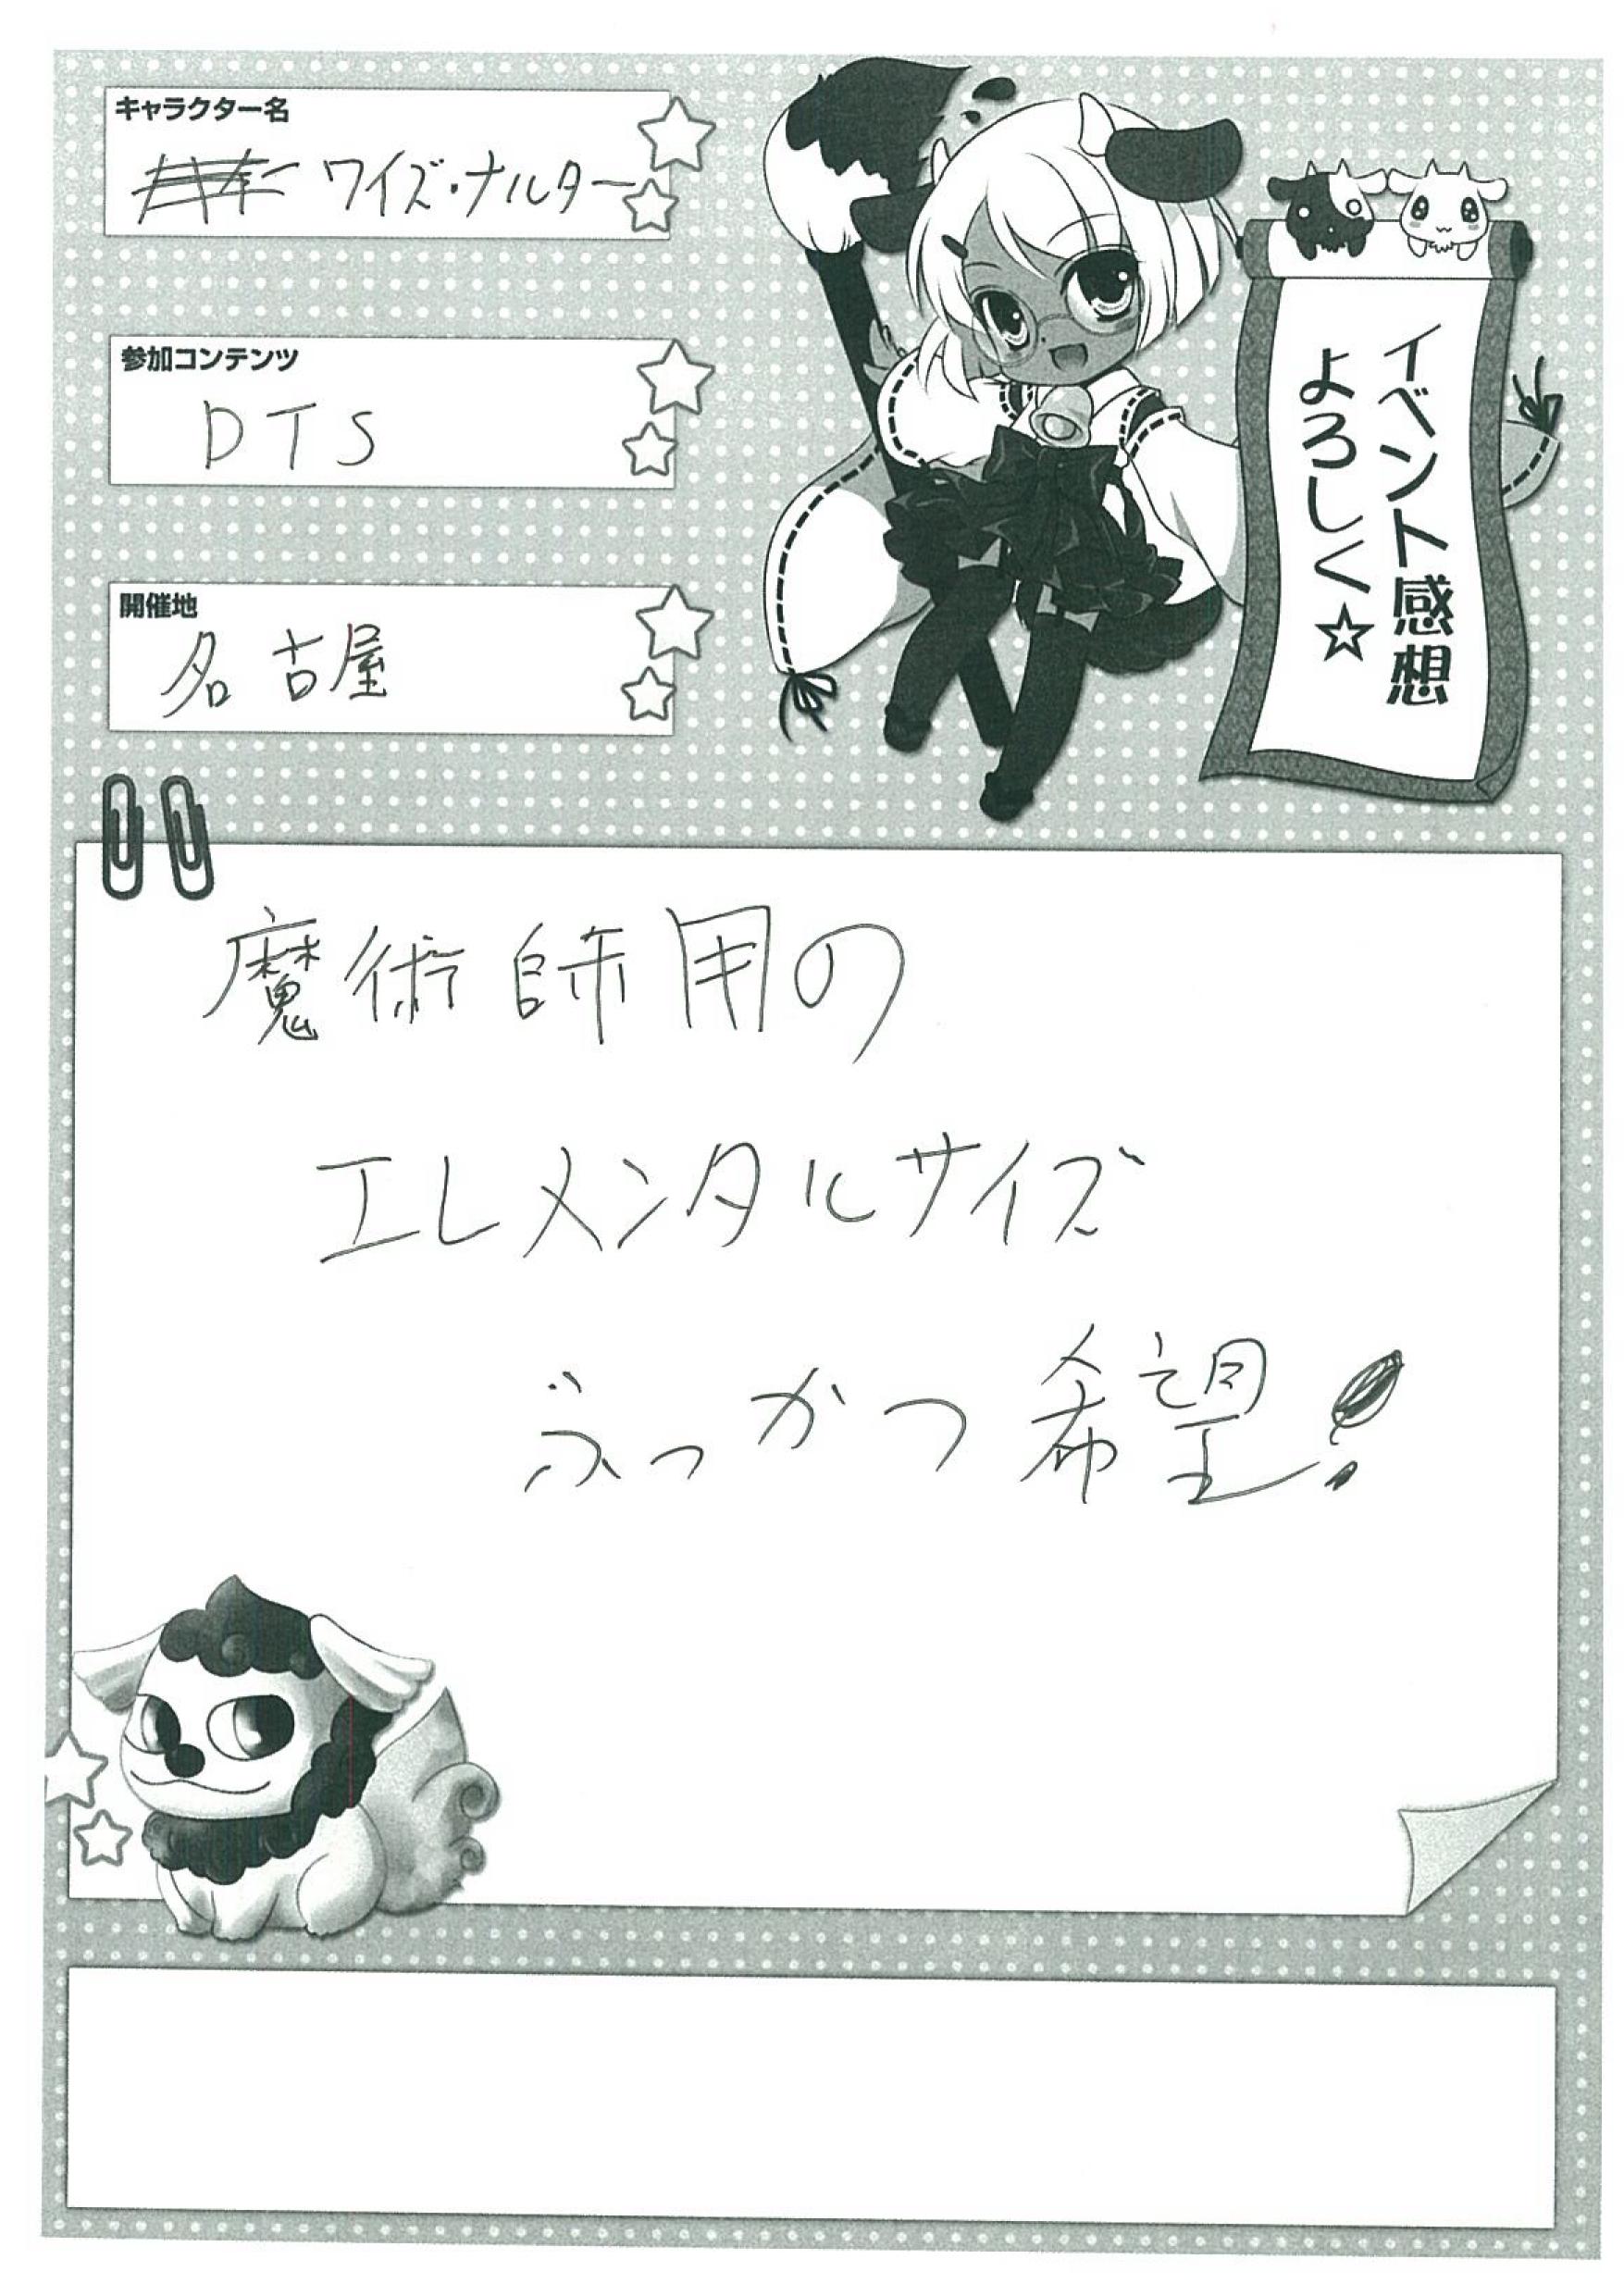 キャラクター名
ワイズ・ナルター
参加コンテンツ
DTS
開催地
名古屋
イベント感想
よろしく☆
魔術師用の
エレメンタルサイズ
ふっかつ希望!